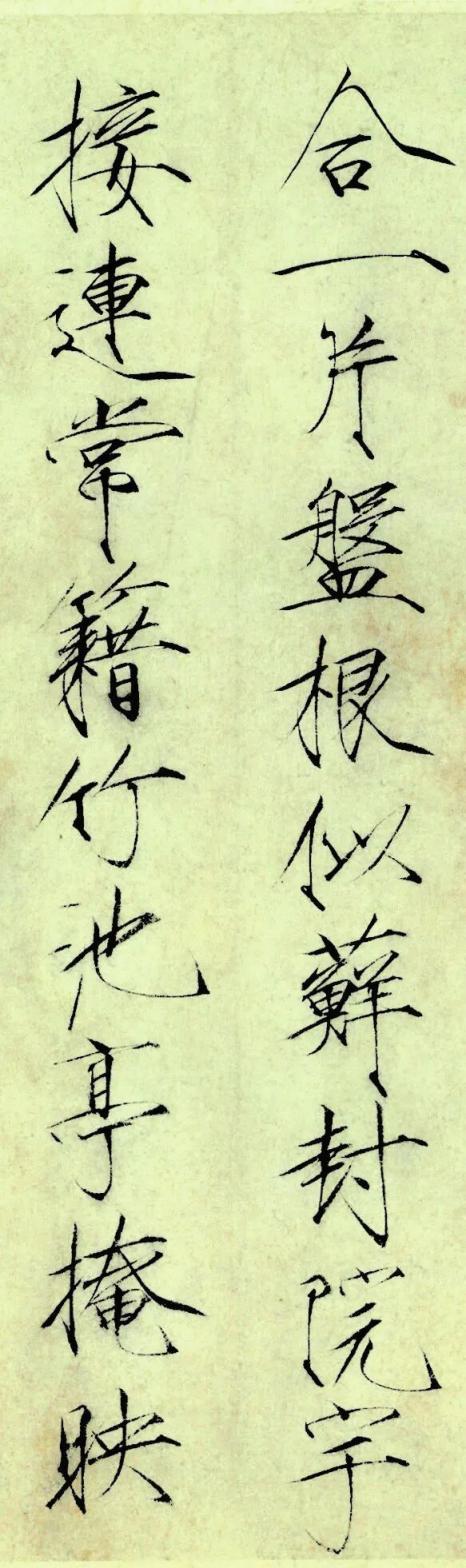 合一片盤根似蘚封院宇
接連常籍竹池亭掩映